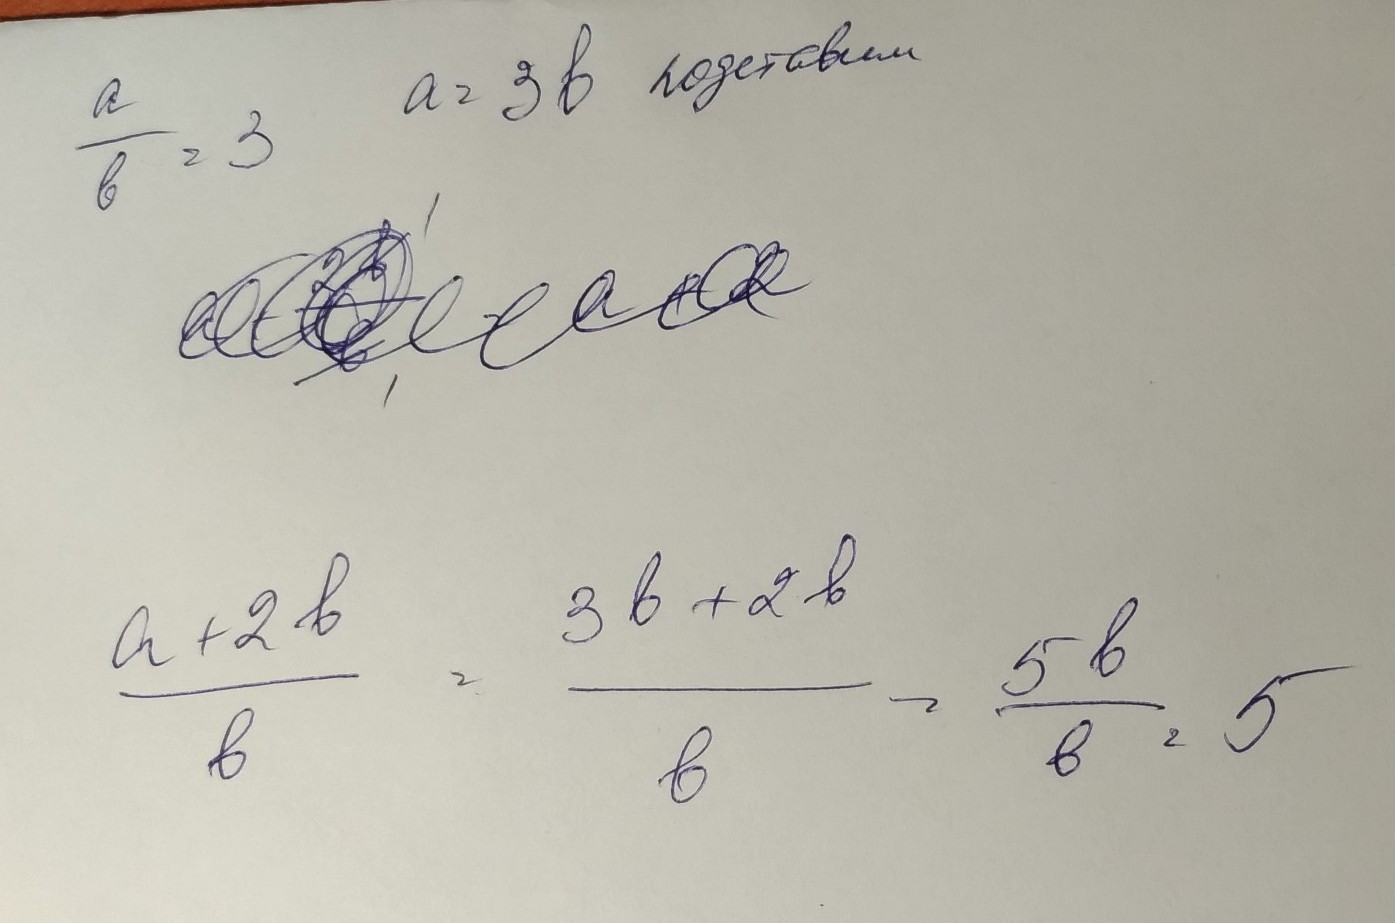 a/b = 3 a = 3b подставим
(a + 2b)/b = (3b + 2b)/b = 5b/b = 5